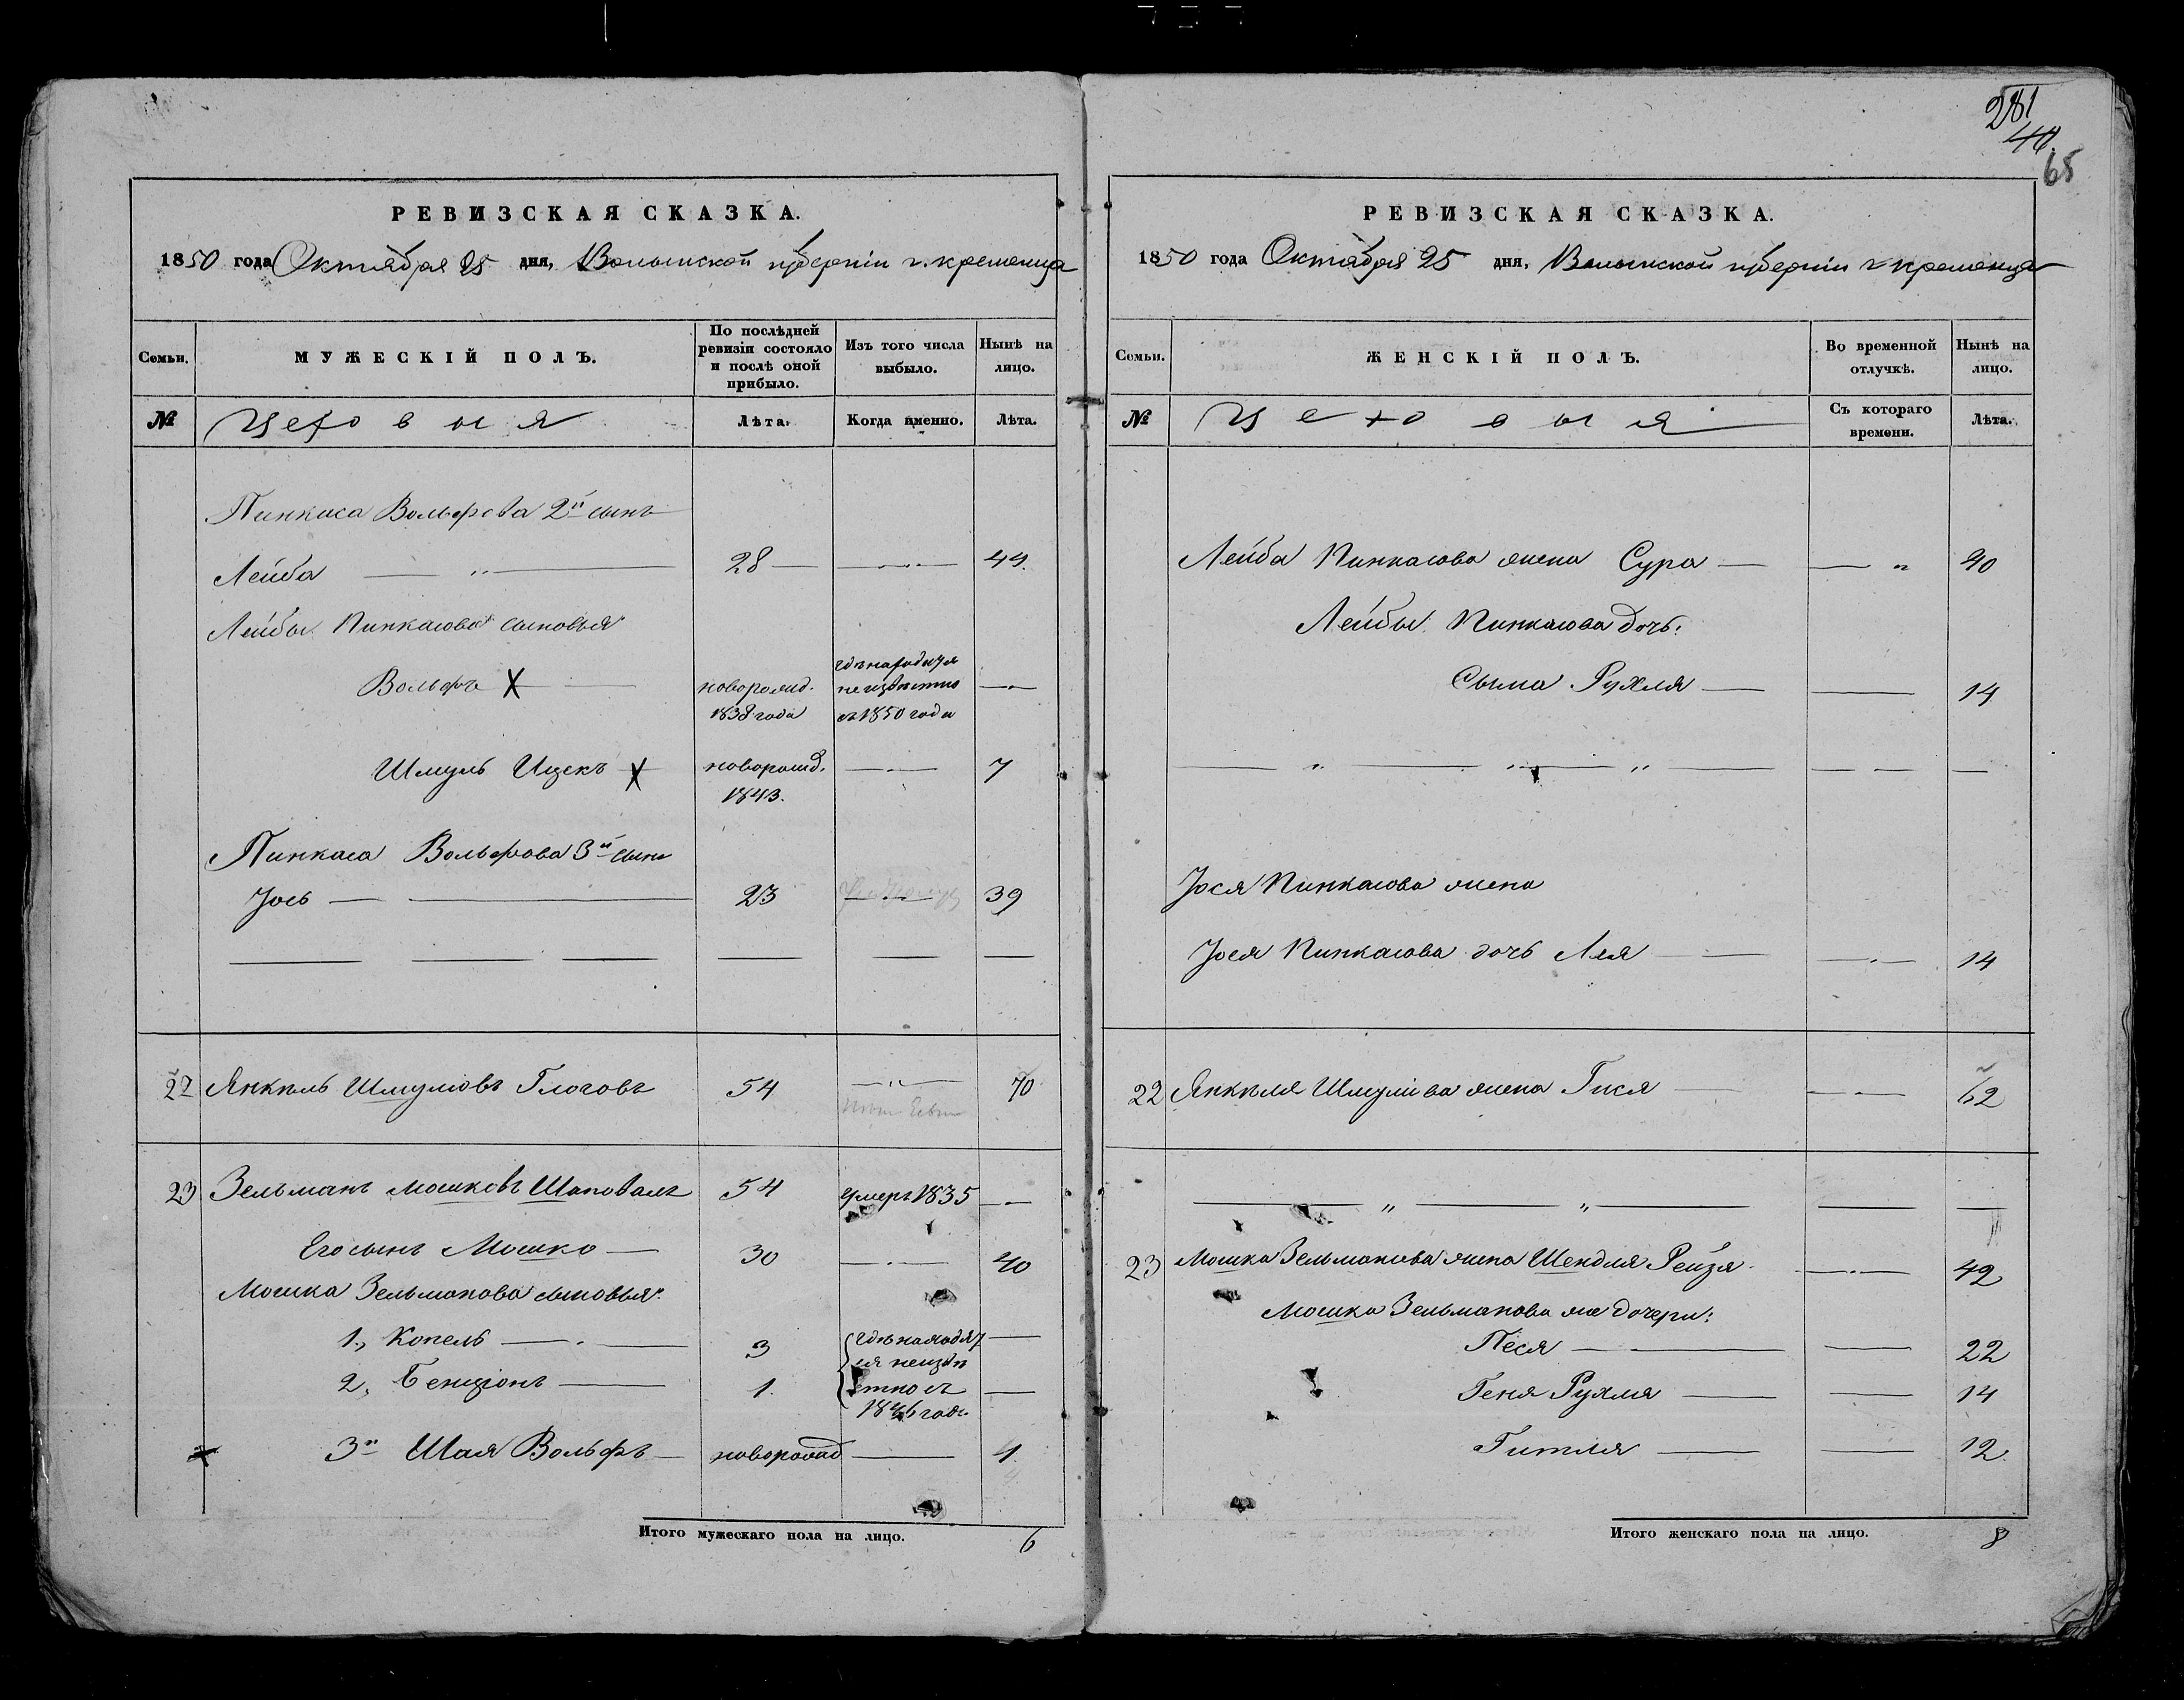 281
40
65
РЕВИЗСКАЯ СКАЗКА.
1850 года Октября 25 дня, Волынской губерніи г. кременца
Семьи. МУЖЕСКІЙ ПОЛЪ. По послѣдней ревизіи состояло и послѣ оной прибыло. Изъ того числа выбыло. Нынѣ на лицо.
№ Цеховыя Лѣта. Когда именно. Лѣта.
Пинкаса Вольфова 2й сынъ
Лейба 28 44.
Лейбы Пинкасова сыновья
Вольфъ X новорожд. 1838 года гдѣ находится неизвѣстно съ 1850 года
Шмуль Ицекъ X новорожд. 1843. 7
Пинкаса Вольфова 3й сынъ
Јось 23 39
22 Янкель Шмулювъ Глоговъ 54 70
23 Зельманъ Мошковъ Шаповалъ 54 умеръ 1835
Его сынъ Мошко 30 40
Мошка Зельманова сыновья:
1., Копель 3 гдѣ находятся неизвѣстно съ 1846 года.
2, Бенціонъ 1.
3й Шая Вольфъ новорожд 4
Итого мужескаго пола на лицо. 6
РЕВИЗСКАЯ СКАЗКА.
1850 года Октября 25 дня, Волынской губерніи г кременца
Семьи. ЖЕНСКІЙ ПОЛЪ. Во временной отлучкѣ. Нынѣ на лицо.
№ Цеховыя Съ котораго времени. Лѣта.
Лейба Пинкасова жена Сура 40
Лейбы Пинкасова дочь:
Сыма Рухля 14
Јося Пинкасова жена
Јося Пинкасова дочь Лея 14
22 Янкеля Шмулiова жена Гися 62
23 Мошка Зельманова жена Шендля Рейзя 42
Мошка Зельманова же дочери:
Песя 22
Геня Рухля 14
Гитля 12.
Итого женскаго пола на лицо. 8